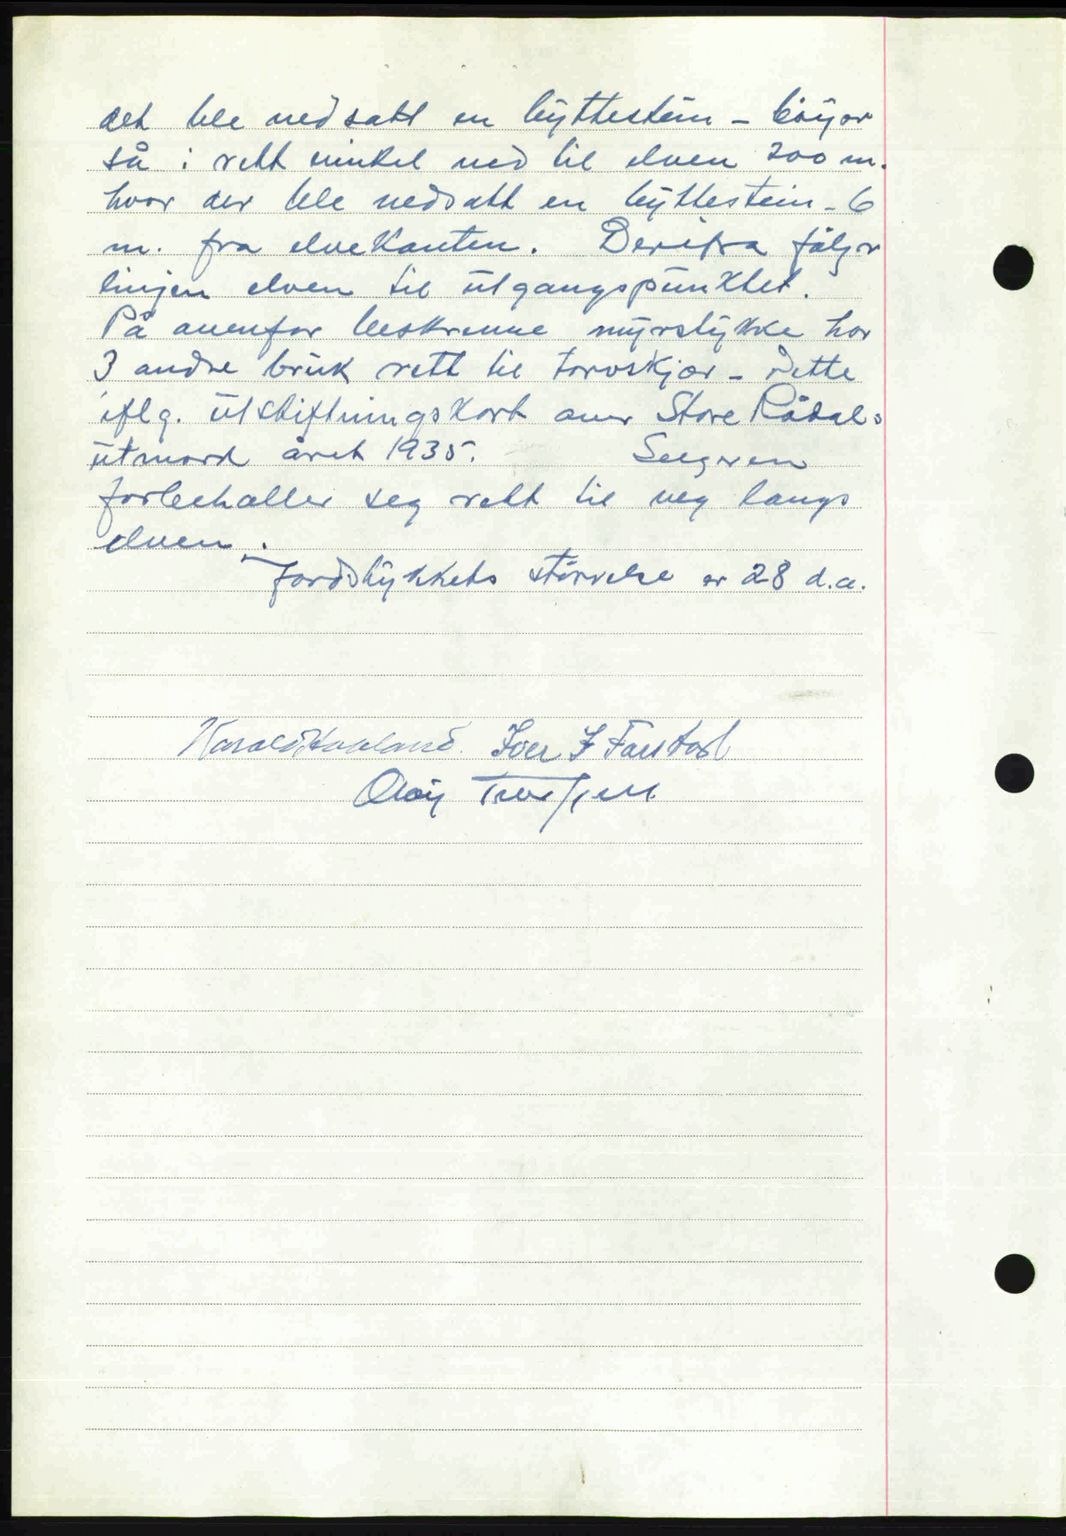 det ble nedsatt en byttestein - böyer
så i rett vinkel ned til elven 200 m.
hvor der ble nedsatt en byttestein - 6
m. fra elvekanten. Derifra fölger
linjen elven til utgangspunktet.
På ovenfor beskrevne myrstykke har
3 andre bruk rett til torvskjær - Dette
iflg. utskiftningskart over Store Rådals
utmark året 1935. Selgeren
forbeholder seg rett til veg langs
elven.
Jordstykkets störrelse er 28 d.a.
Harald Haaland. Iver I Farstad
Olav